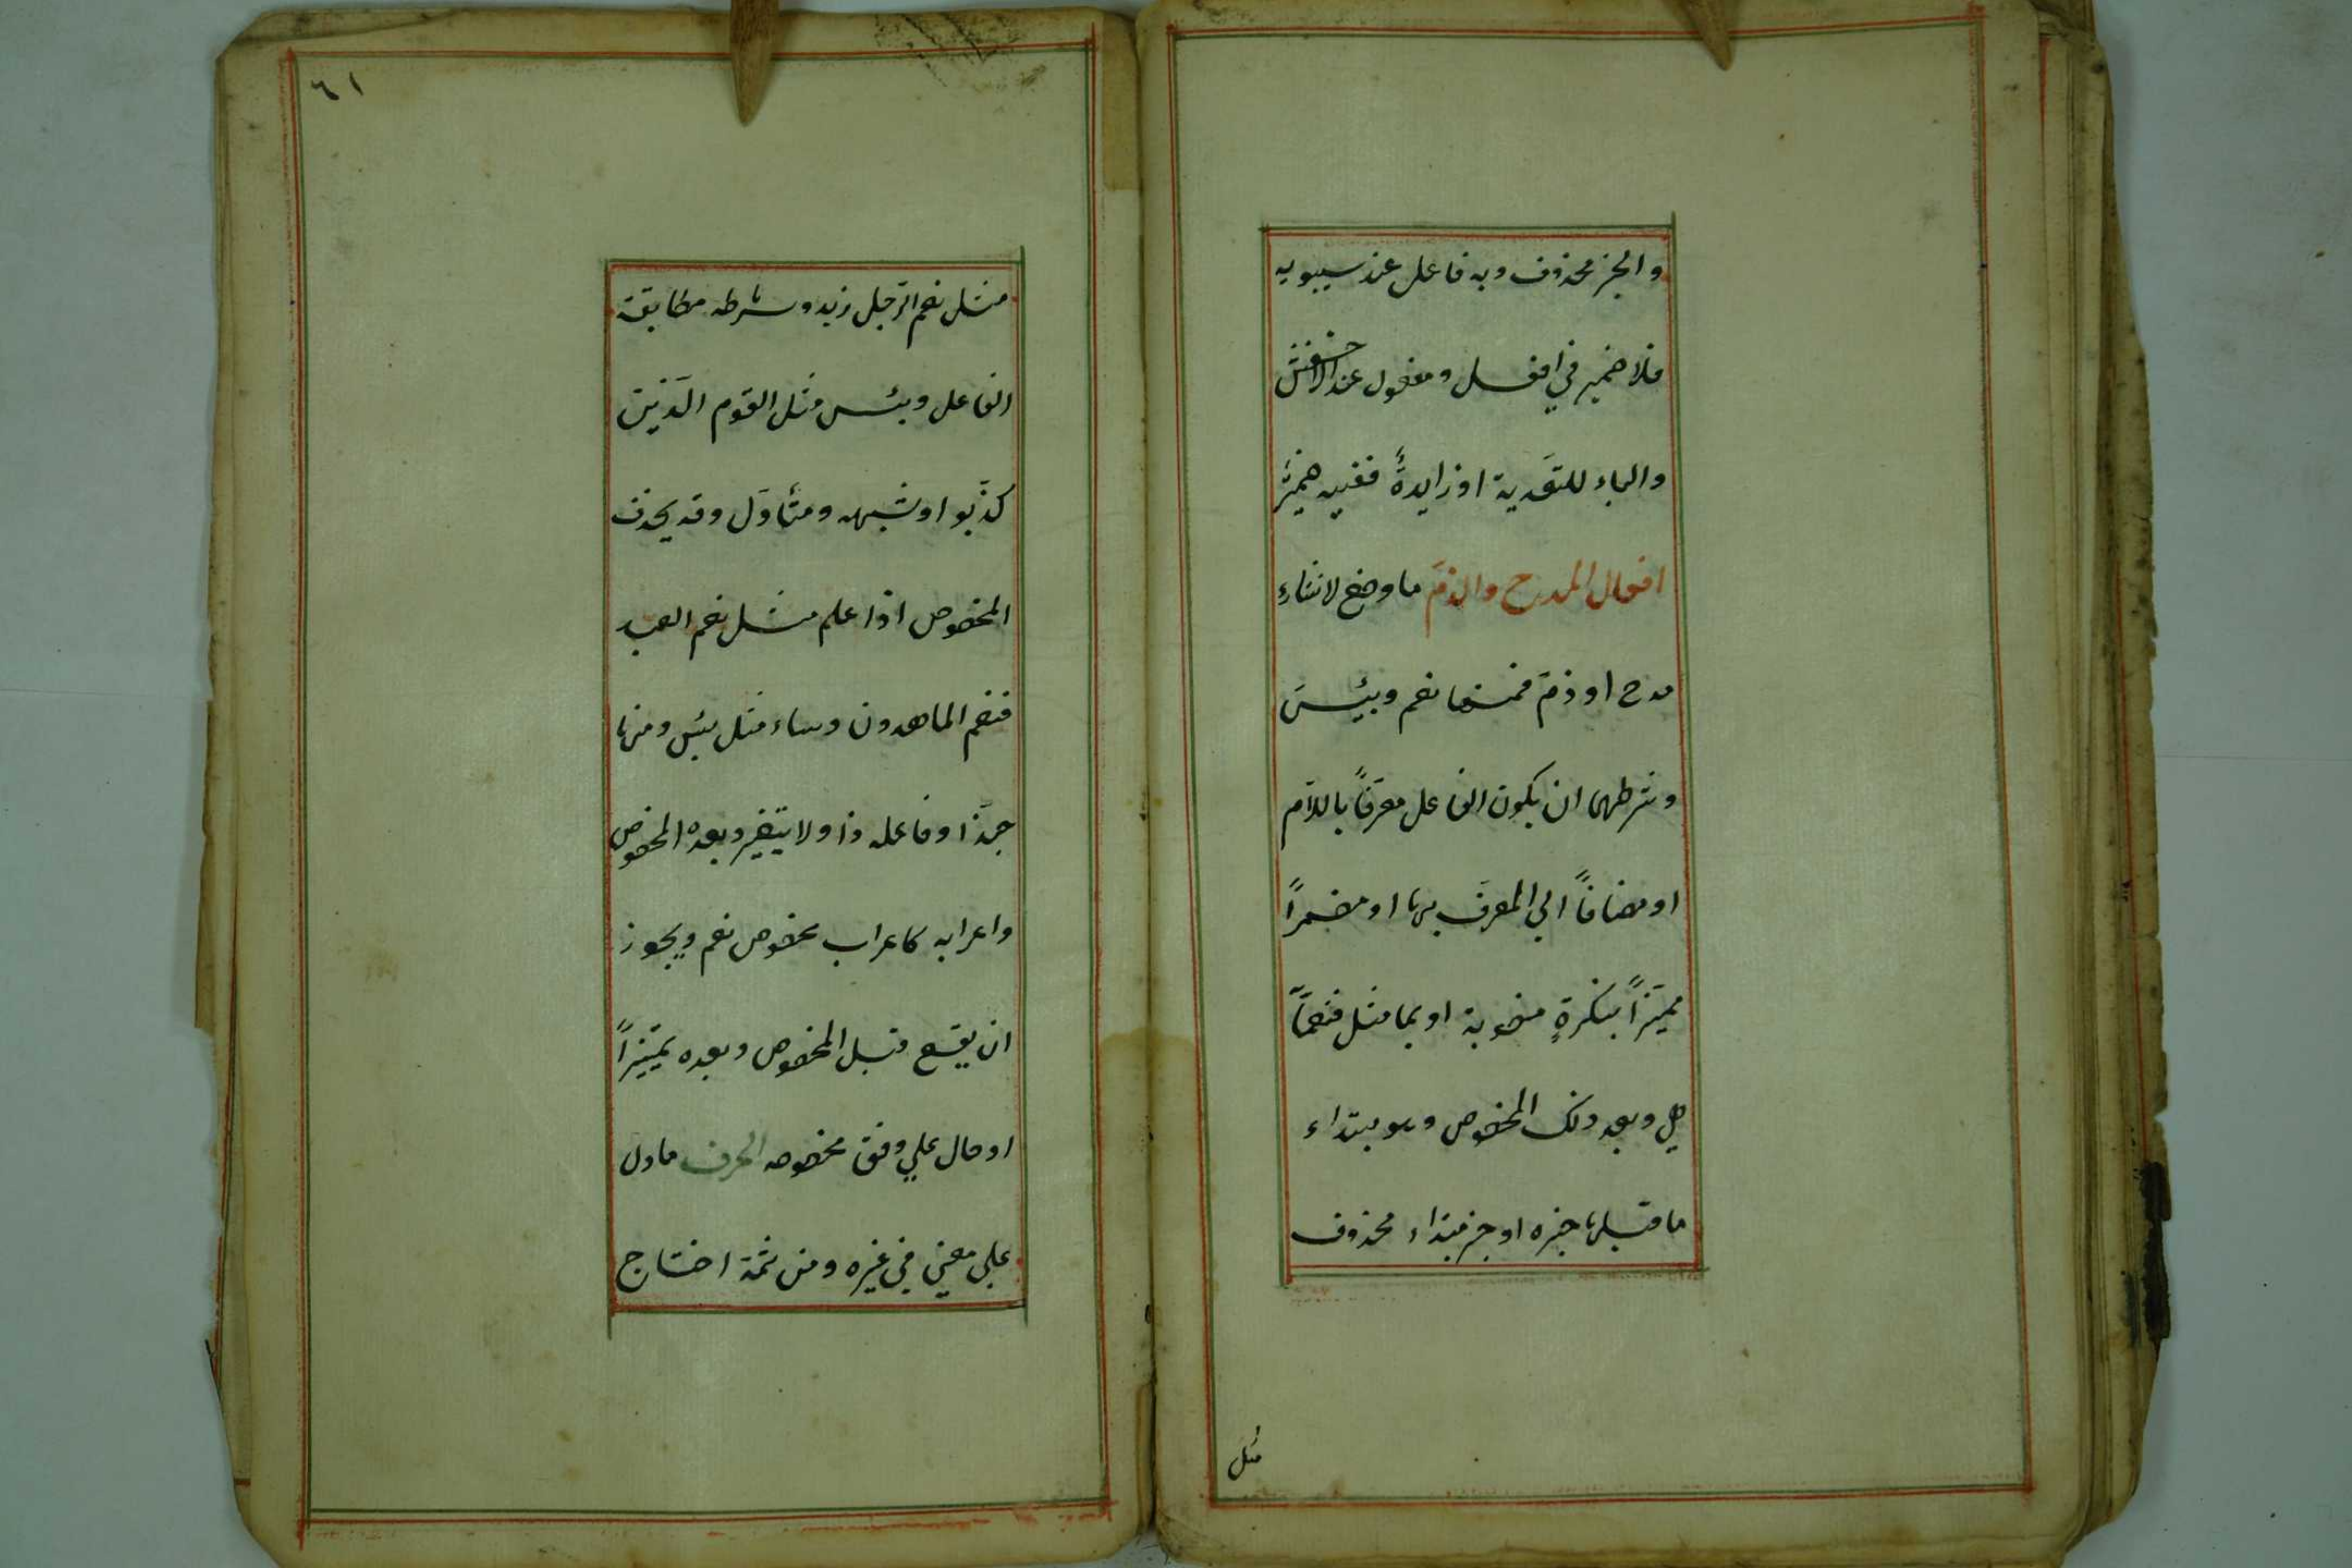 والخبر محذوف وبه فاعل عند سيبويه
فلا ضمير في افعل ومفعول عند الاخفش
والباء للتعَدية او زايدةً ففيه ضميرٌ
افعال المدح والذمّ ما وضع لانشاءِ
مدح او ذمّ فمنها نعم وبئيسَ
وشرطهما ان يكون الفاعل معرّفاً باللّام
او مضافاً الي المعرّف بها او مضمراً
مميّزاً بنكرةٍ منصوبة او بما مثل فنعمّا
هي وبعد ذلك المخصوص وهو مبتداء
ما قبلها خبره او خبر مبتداء محذوف
مثل
٦١
مثل نعم الرّجل زيد وشرطه مطابقة
الفاعل وبئس مثل القوم الّذين
كذّبوا او شبهه ومتأوّل وقد يحذف
المخصوص اذا علم مثل نعم العبد
فنعم الماهدون وساء مثل بئس ومنها
حبّذا وفاعله ذا ولا يتغير وبعده المخصوص
واعرابه كاعراب مخصوص نعم ويجوز
ان يقع قبل المخصوص وبعده تمييزاً
او حال علي وفق مخصوصه الحرف ما دلّ
علي معني في غيره ومن ثمّة احتاج